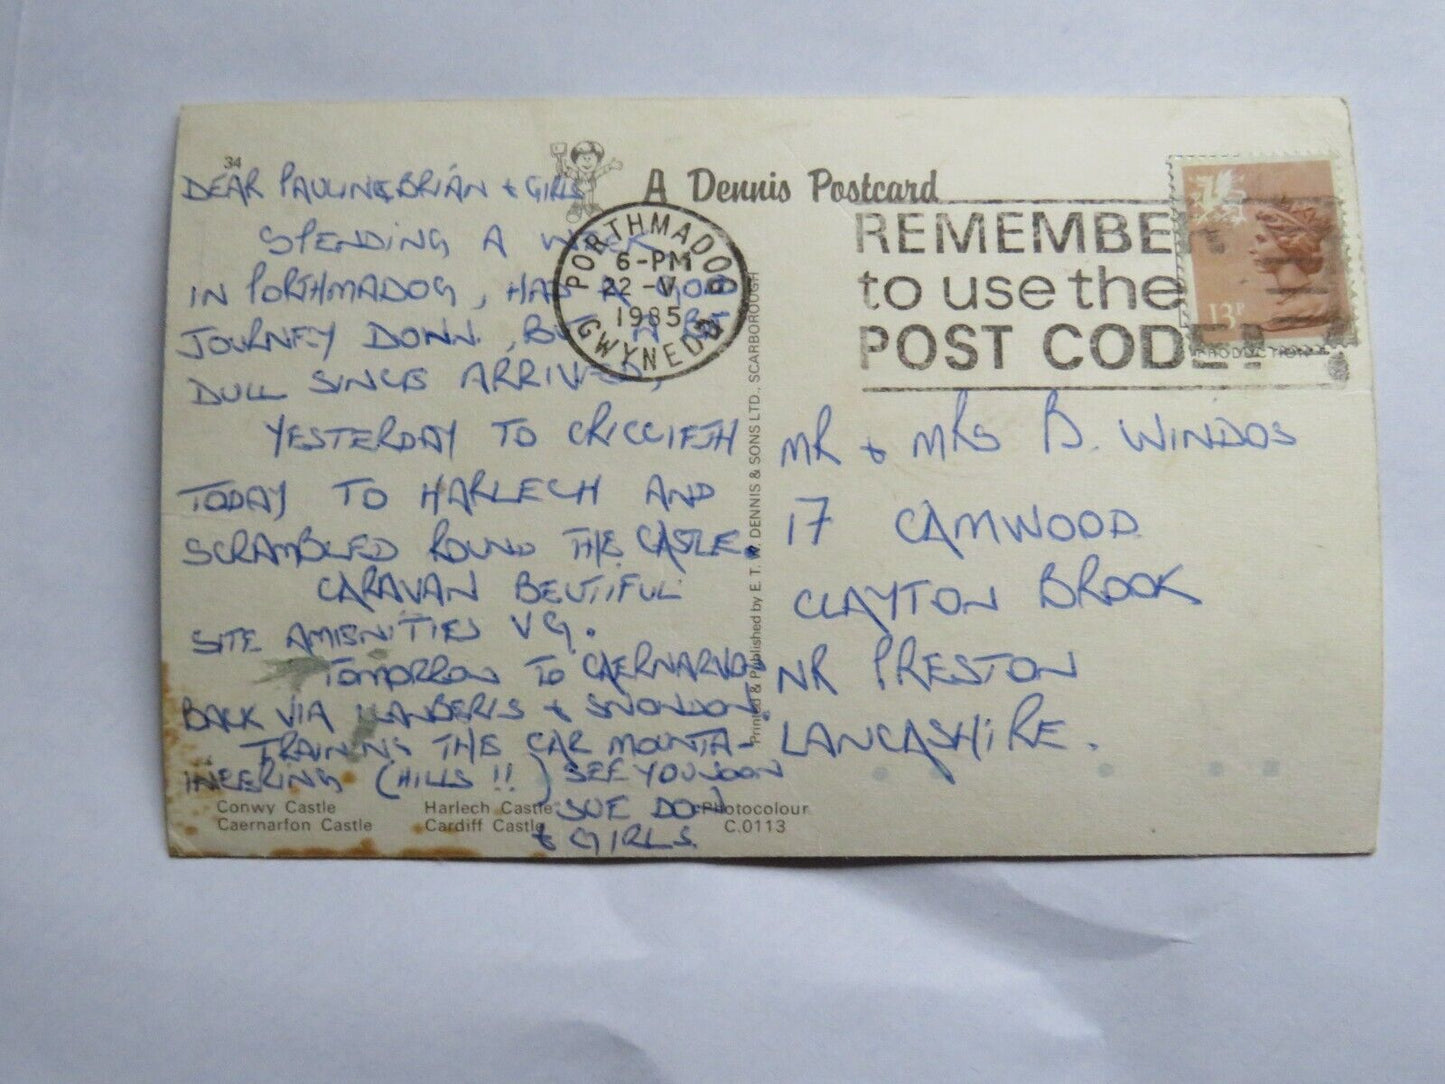 34
A Dennis Postcard
DEAR PAULINE, BRIAN & GIRLS
SPENDING A WEEK
IN PORTHMADOG, HAD A GOOD
JOURNEY DOWN, BUT A BIT
DULL SINCE ARRIVED,
YESTERDAY TO CRICCIETH
TODAY TO HARLECH AND
SCRAMBLED ROUND THE CASTLE.
CARAVAN BEUTIFUL
SITE AMENITIES VG.
TOMORROW TO CAERNARVON
BACK VIA LLANBERIS & SNOWDON.
TRAINING THE CAR MOUNTA-
INEERING (HILLS !!) SEE YOU SOON
SUE DON
& GIRLS
Conwy Castle
Caernarfon Castle
Harlech Castle
Cardiff Castle
Photocolour
C.0113
Printed & Published by E. T. W. DENNIS & SONS LTD., SCARBOROUGH
PORTHMADOG
6-PM
22 -V
1985
GWYNEDD
REMEMBE
to use the
POST CODE
13P
MR & MRS B. WINDOS
17 CAMWOOD
CLAYTON BROOK
NR PRESTON
LANCASHIRE.